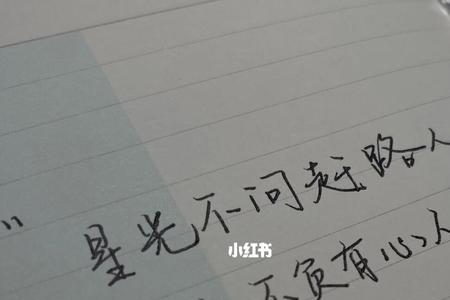 “星光不问赶路人
小红书
不负有心人